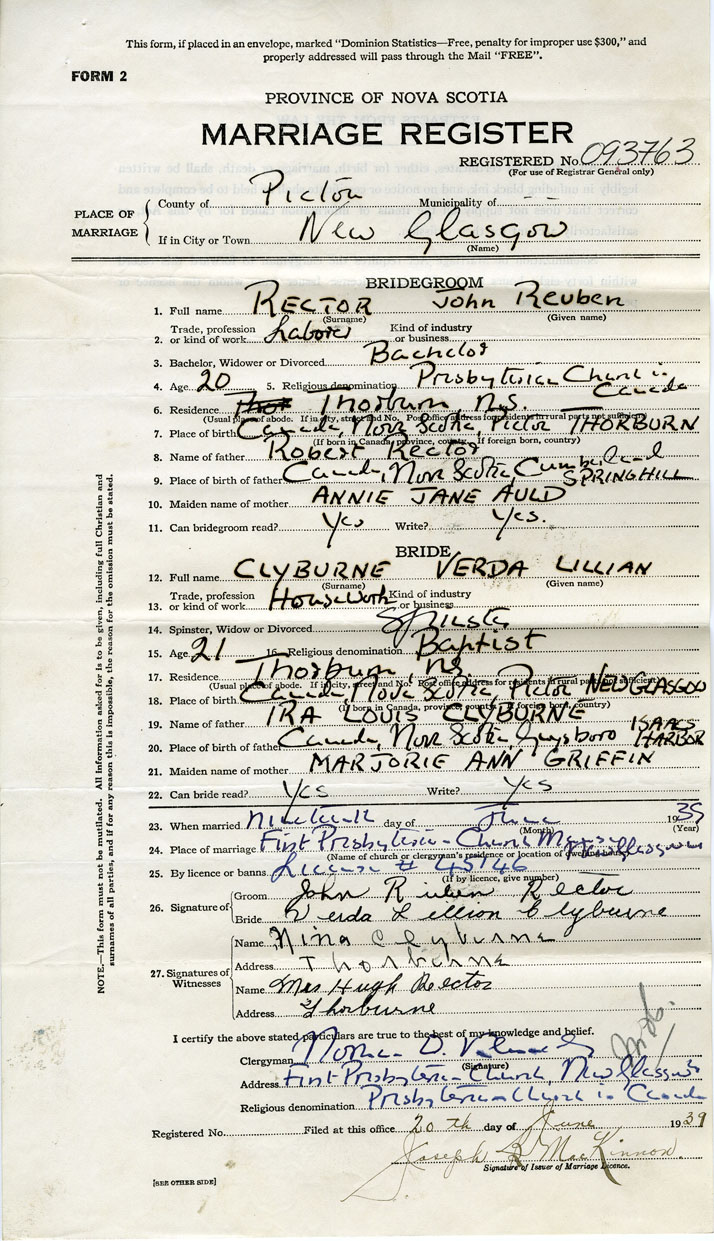 This form, if placed in an envelope, marked "Dominion Statistics—Free, penalty for improper use $300," and
properly addressed will pass through the Mail "FREE".
FORM 2
PROVINCE OF NOVA SCOTIA
MARRIAGE REGISTER
REGISTERED No. 093763
(For use of Registrar General only)
PLACE OF MARRIAGE
County of Pictou Municipality of - -
If in City or Town New Glasgow
(Name)
BRIDEGROOM
1. Full name RECTOR John Reuben
(Surname) (Given name)
2. Trade, profession or kind of work Laborer Kind of industry or business
3. Bachelor, Widower or Divorced Bachelor
4. Age 20 5. Religious denomination Presbyterian Church in Canada
6. Residence Thorburn, N.S.
(Usual place of abode. If in city, street and No. Post Office address for residents in rural parts not sufficient)
7. Place of birth Canada, Nova Scotia, Pictou THORBURN
(If born in Canada, province, county. If foreign born, country)
8. Name of father Robert Rector
9. Place of birth of father Canada, Nova Scotia, Cumberland SPRINGHILL
10. Maiden name of mother ANNIE JANE AULD
11. Can bridegroom read? Yes Write? Yes.
BRIDE
12. Full name CLYBURNE VERDA LILLIAN
(Surname) (Given name)
13. Trade, profession or kind of work Housework Kind of industry or business
14. Spinster, Widow or Divorced Spinster
15. Age 21 16. Religious denomination Baptist
17. Residence Thorburn, NS
(Usual place of abode. If in city, street and No. Post office address for residents in rural parts not sufficient)
18. Place of birth Canada, Nova Scotia, Pictou NEW GLASGOW
(If born in Canada, province, county. If foreign born, country)
19. Name of father IRA LOUIS CLYBURNE
20. Place of birth of father Canada, Nova Scotia Guysboro ISAACS HARBOR
21. Maiden name of mother MARJORIE ANN GRIFFIN
22. Can bride read? Yes Write? Yes
23. When married Nineteenth day of June 1939
(Month) (Year)
24. Place of marriage First Presbyterian Church Manse New Glasgow
(Name of church or clergyman's residence or location of dwelling)
25. By licence or banns License # 45146
(If by licence, give number)
26. Signature of
Groom John Ruben Rector
Bride Verda Lillion Clyburne
27. Signatures of Witnesses
Name Nina Clyburne
Address Thorburne
Name Mrs Hugh Rector
Address Thorburne
I certify the above stated particulars are true to the best of my knowledge and belief.
Clergyman Norman D.
(Signature)
Address First Presbyterian Church, New Glasgow
Religious denomination Presbyterian Church in Canada
Registered No. Filed at this office 20th day of June 1939
Joseph MacKinnon
Signature of Issuer of Marriage Licence.
[SEE OTHER SIDE]
NOTE.—This form must not be mutilated. All information asked for is to be given, including full Christian and
surnames of all parties, and if for any reason this is impossible, the reason for the omission must be stated.